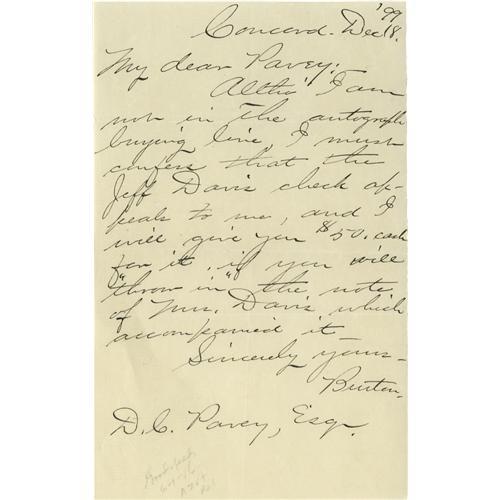 Concord. Dec '99
18.
My dear Pavey:
Altho' I am
not in the autograph
buying line, I must
confess that the
Jeff Davis check ap-
peals to me, and I
will give you $50. cash
for it, if you will
"throw in" the note
of Mrs. Davis, which
accompanied it
Sincerely yours-
Burton.
D. C. Pavey, Esq.